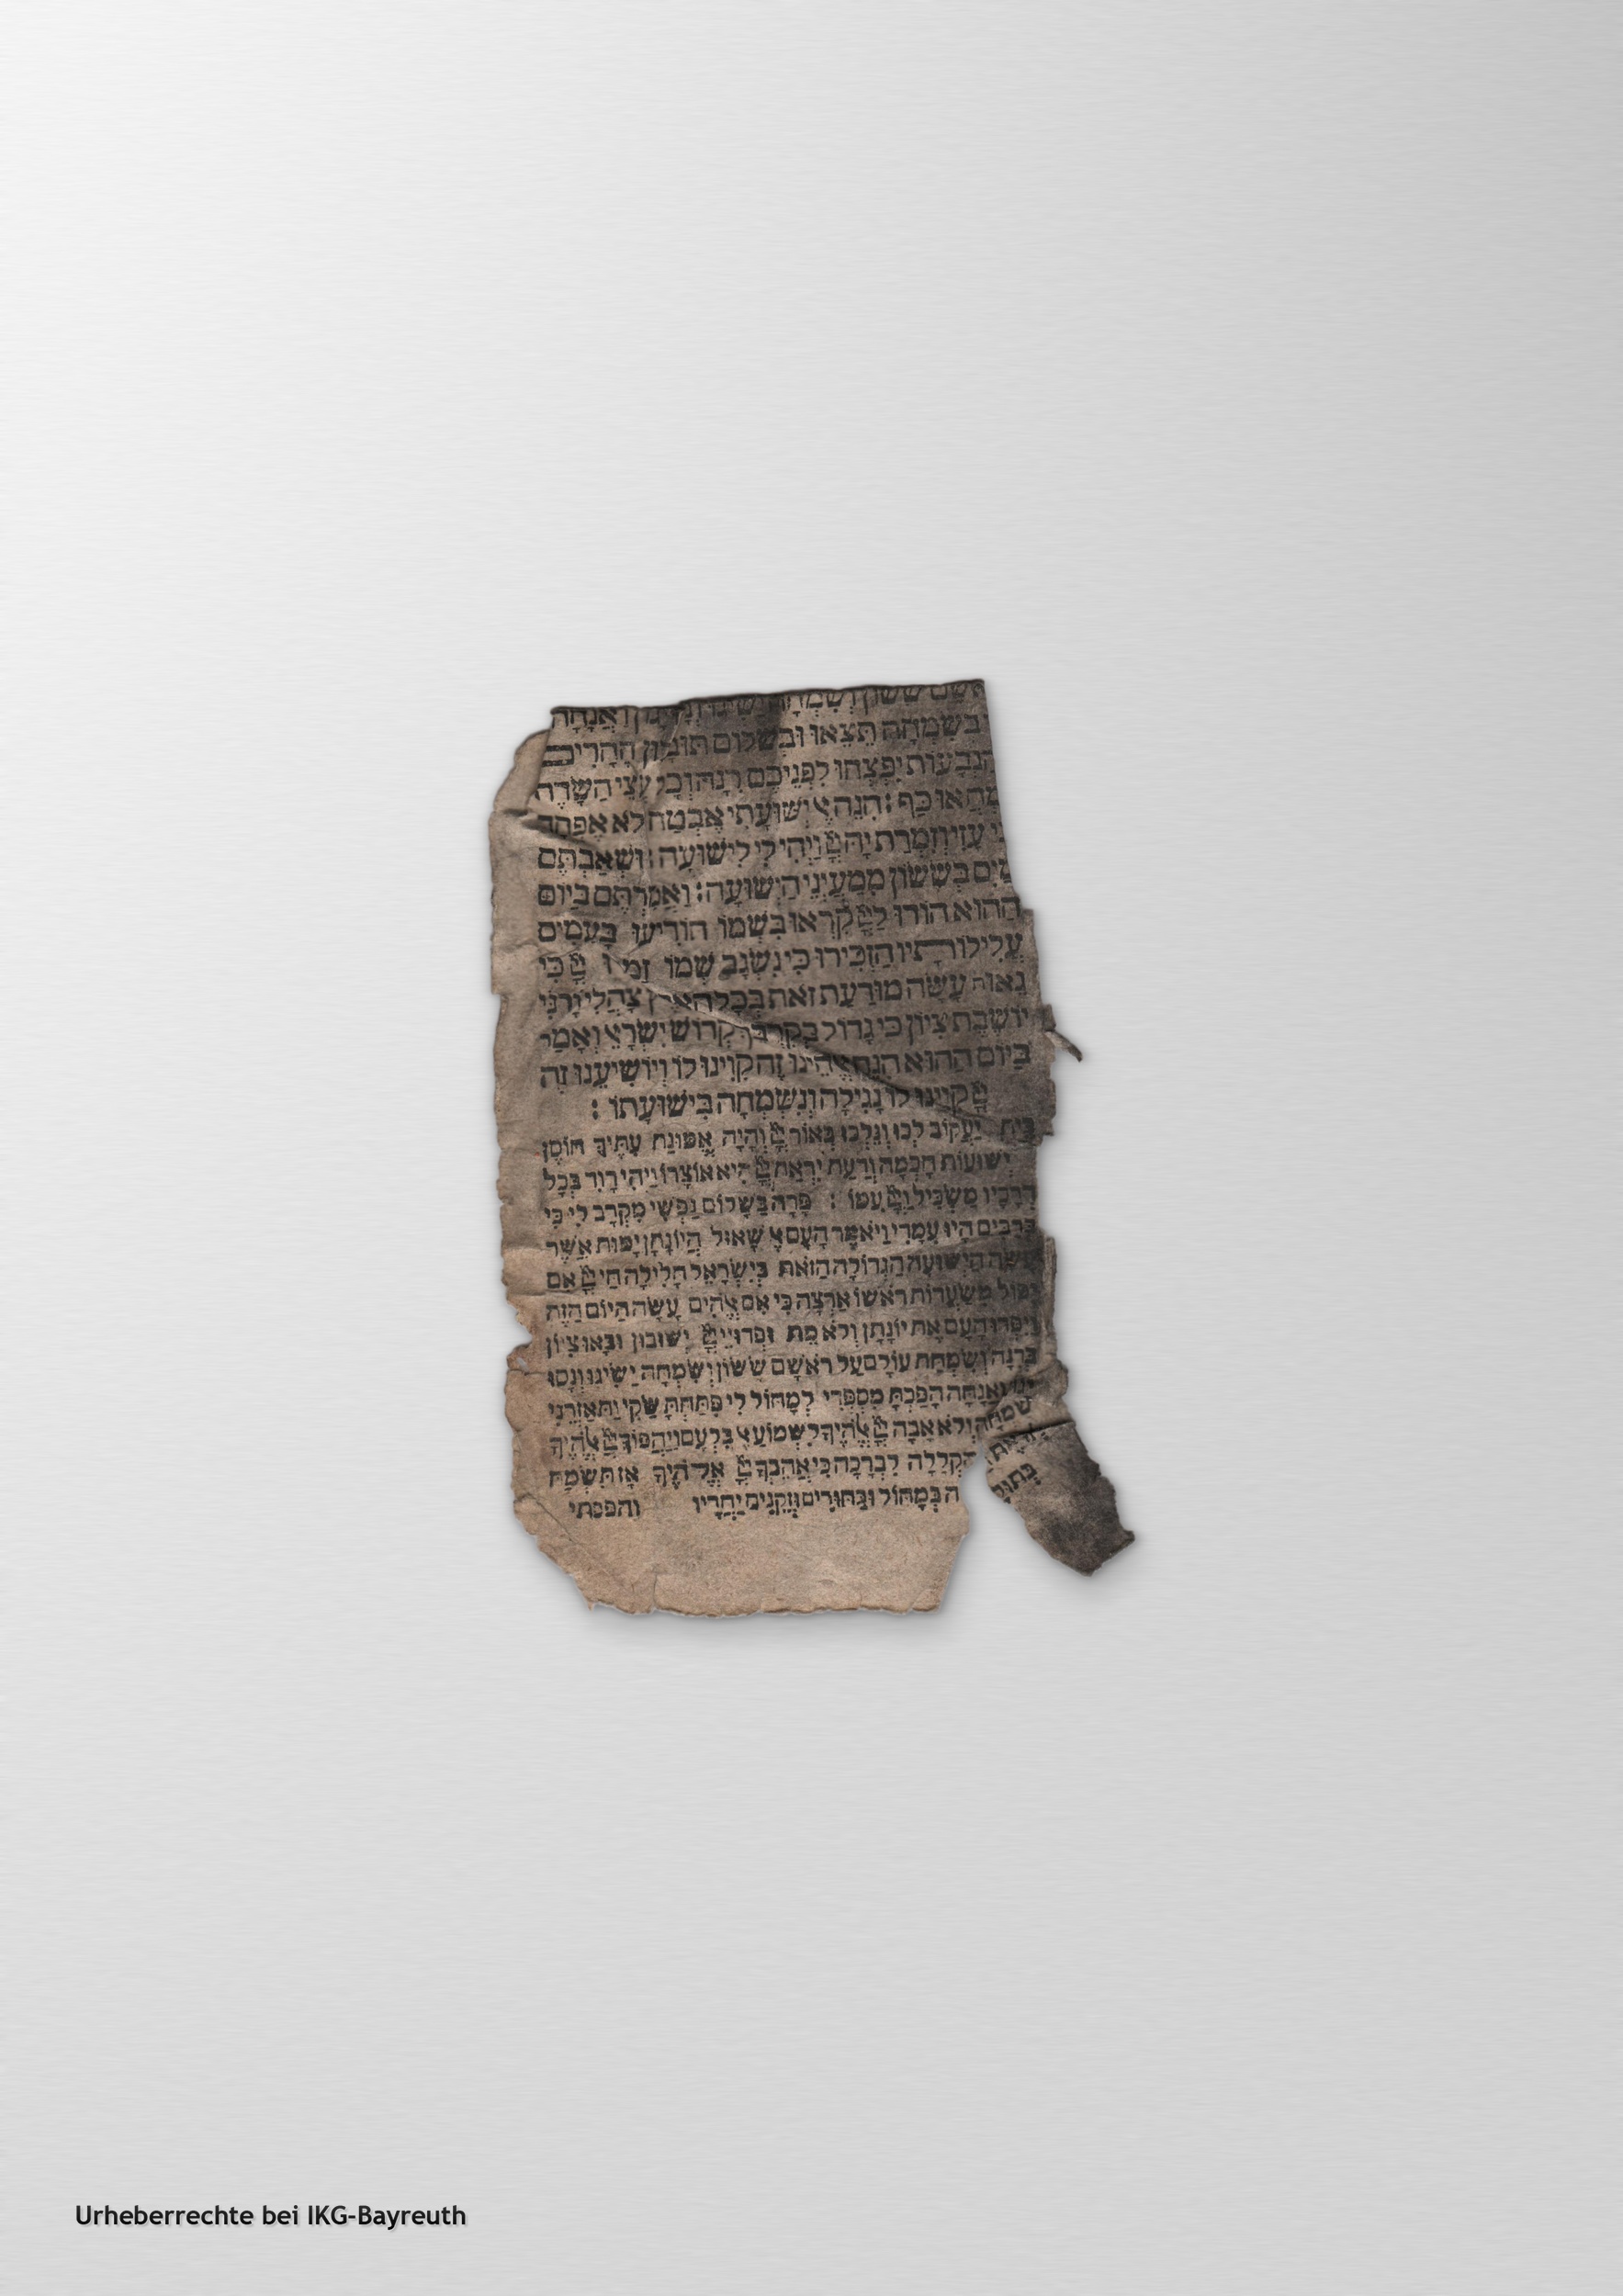 ששון ושמחה
בשמחה תצאו ובשלום תובלון ההרים
והגבעות יפצחו לפניכם רנה וכל עצי השדה
ימחאו כף : הנה אל ישועתי אבטח ולא אפחד
עזי וזמרת יה יי ויהי לי לישועה : ושאבתם
מים בששון ממעיני הישועה : ואמרתם ביום
ההוא הודו ליי קראו בשמו הודיעו בעמים
עלילותיו הזכירו כי נשגב שמו יי כי
גאות עשה מודעת זאת בכל הארץ צהלי ורני
יושבת ציון כי גדול בקרבך קדוש ישראל ואמר
ביום ההוא הנה אלהינו זה קוינו לו ויושיענו זה
יי קוינו לו נגילה ונשמחה בישועתו :
בית יעקוב לכו ונלכו באור יי והיה אמונת עתיך חוסן
ישועות חכמה ודעת יראת יי היא אוצרו ויהי דוד בכל
דרכיו משכיל ויי עמו : פדה בשלום נפשי מקרב לי כי
ברבים היו עמדי ויאמר העם אל שאול היונתן ימות אשר
עשה הישועה הגדולה הזאת בישראל חלילה חי יי אם
יפול משערות ראשו ארצה כי אם אלהים עשה היום הזה
ויפדו העם את יונתן ולא מת ופדויי יי ישובון ובאו ציון
ברנה ושמחת עולם על ראשם ששון ושמחה ישיגו ונסו
יגון ואנחה הפכת מספדי למחול לי פתחת שקי ותאזרני
שמחה ולא אבה יי אלהיך לשמוע אל בלעם ויהפוך יי אלהיך
הקללה לברכה כי אהבך יי אלהיך אז תשמח
בתולה במחול ובחורים וזקנים יחדיו והפכתי
Urheberrechte bei IKG-Bayreuth